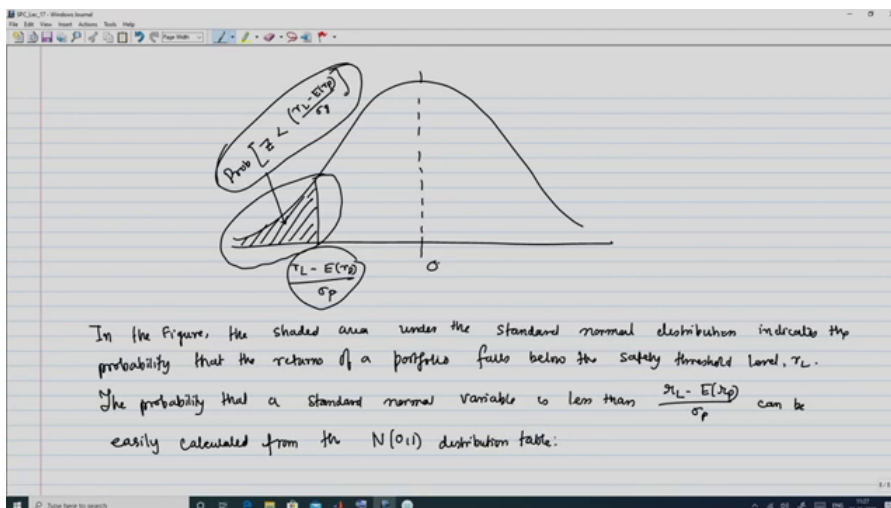 SPC_Lec_17 - Windows Journal
File Edit View Insert Actions Tools Help
Page Width
Prob [Z < (rL - E(rp)) / σp]
rL - E(rp) / σp
0
In the Figure, the shaded area under the standard normal distribution indicates the
probability that the returns of a portfolio falls below the safety threshold level, rL.
The probability that a standard normal variable is less than rL - E(rp) / σp can be
easily calculated from the N(0,1) distribution table:
3/3
Type here to search
ENG
11:27